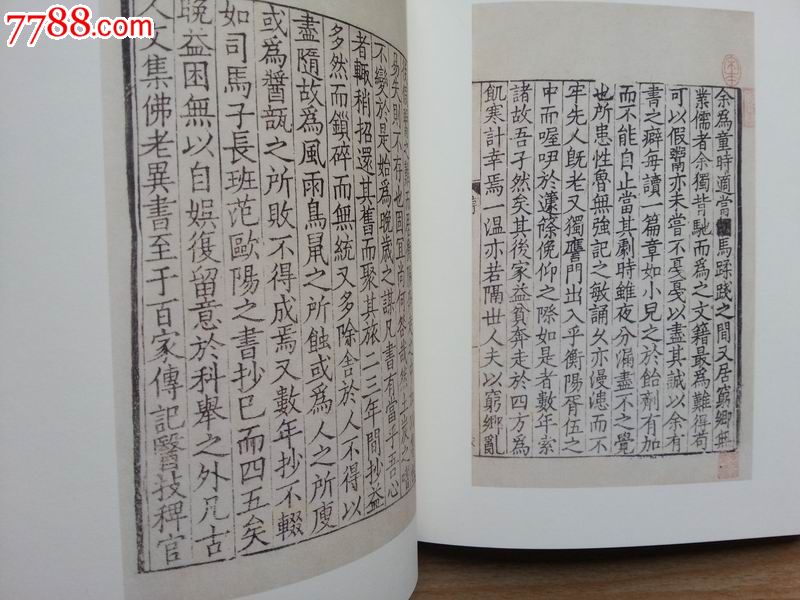 7788.com
余為童時適當馬蹂踐之間又居窮鄉無
業儒者余獨背馳而為之文籍最為難得苟
可以假鬻亦未嘗不戞戞以盡其誠以余有
書之癖每讀一篇章如小兒之於飴劑有加
而不能自止當其劇時雖夜分漏盡不之覺
也所患性魯無強記之敏誦久亦漫漶而不
牢先人既老又獨膺門出入乎衡陽胥伍之
中而喔咿於籧篨俛仰之際如是者數年索
諸故吾孑然矣其後家益貧奔走於四方為
飢寒計幸焉一溫亦若隔世人夫以窮鄉亂
易矣則不存也固宜尚何咎哉然
不變於是始為晚歲之謀凡書有當乎吾心
者輒稍招還其舊而聚其旅二三年間抄益
多然而鎖碎而無統又多除舍於人不得以
盡隨故為風雨鳥鼠之所蝕或為人之所廋
或為醬瓿之所敗不得成焉又數年抄不輟
如司馬子長班范歐陽之書抄巳而四五矣
晚益困無以自娛復留意於科舉之外凡古
人文集佛老異書至于百家傳記醫技稗官